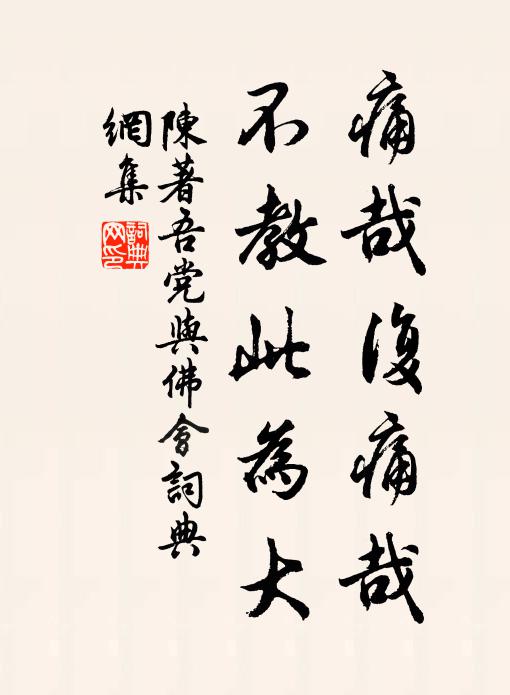 痛哉復痛哉
不教此為大
陳著吾党與佛會詞典
網集
詞典
网印